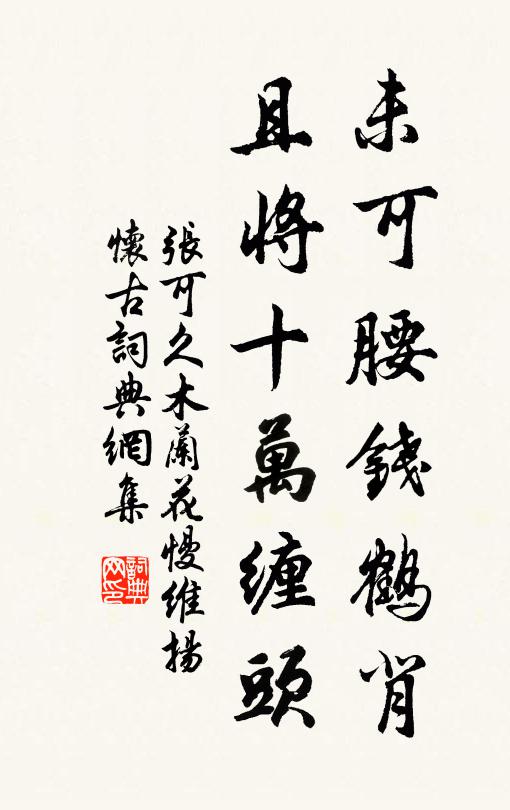 未可腰錢鶴背
且將十萬纏頭
張可久木蘭花慢維揚
懷古詞典網集
詞典
网印